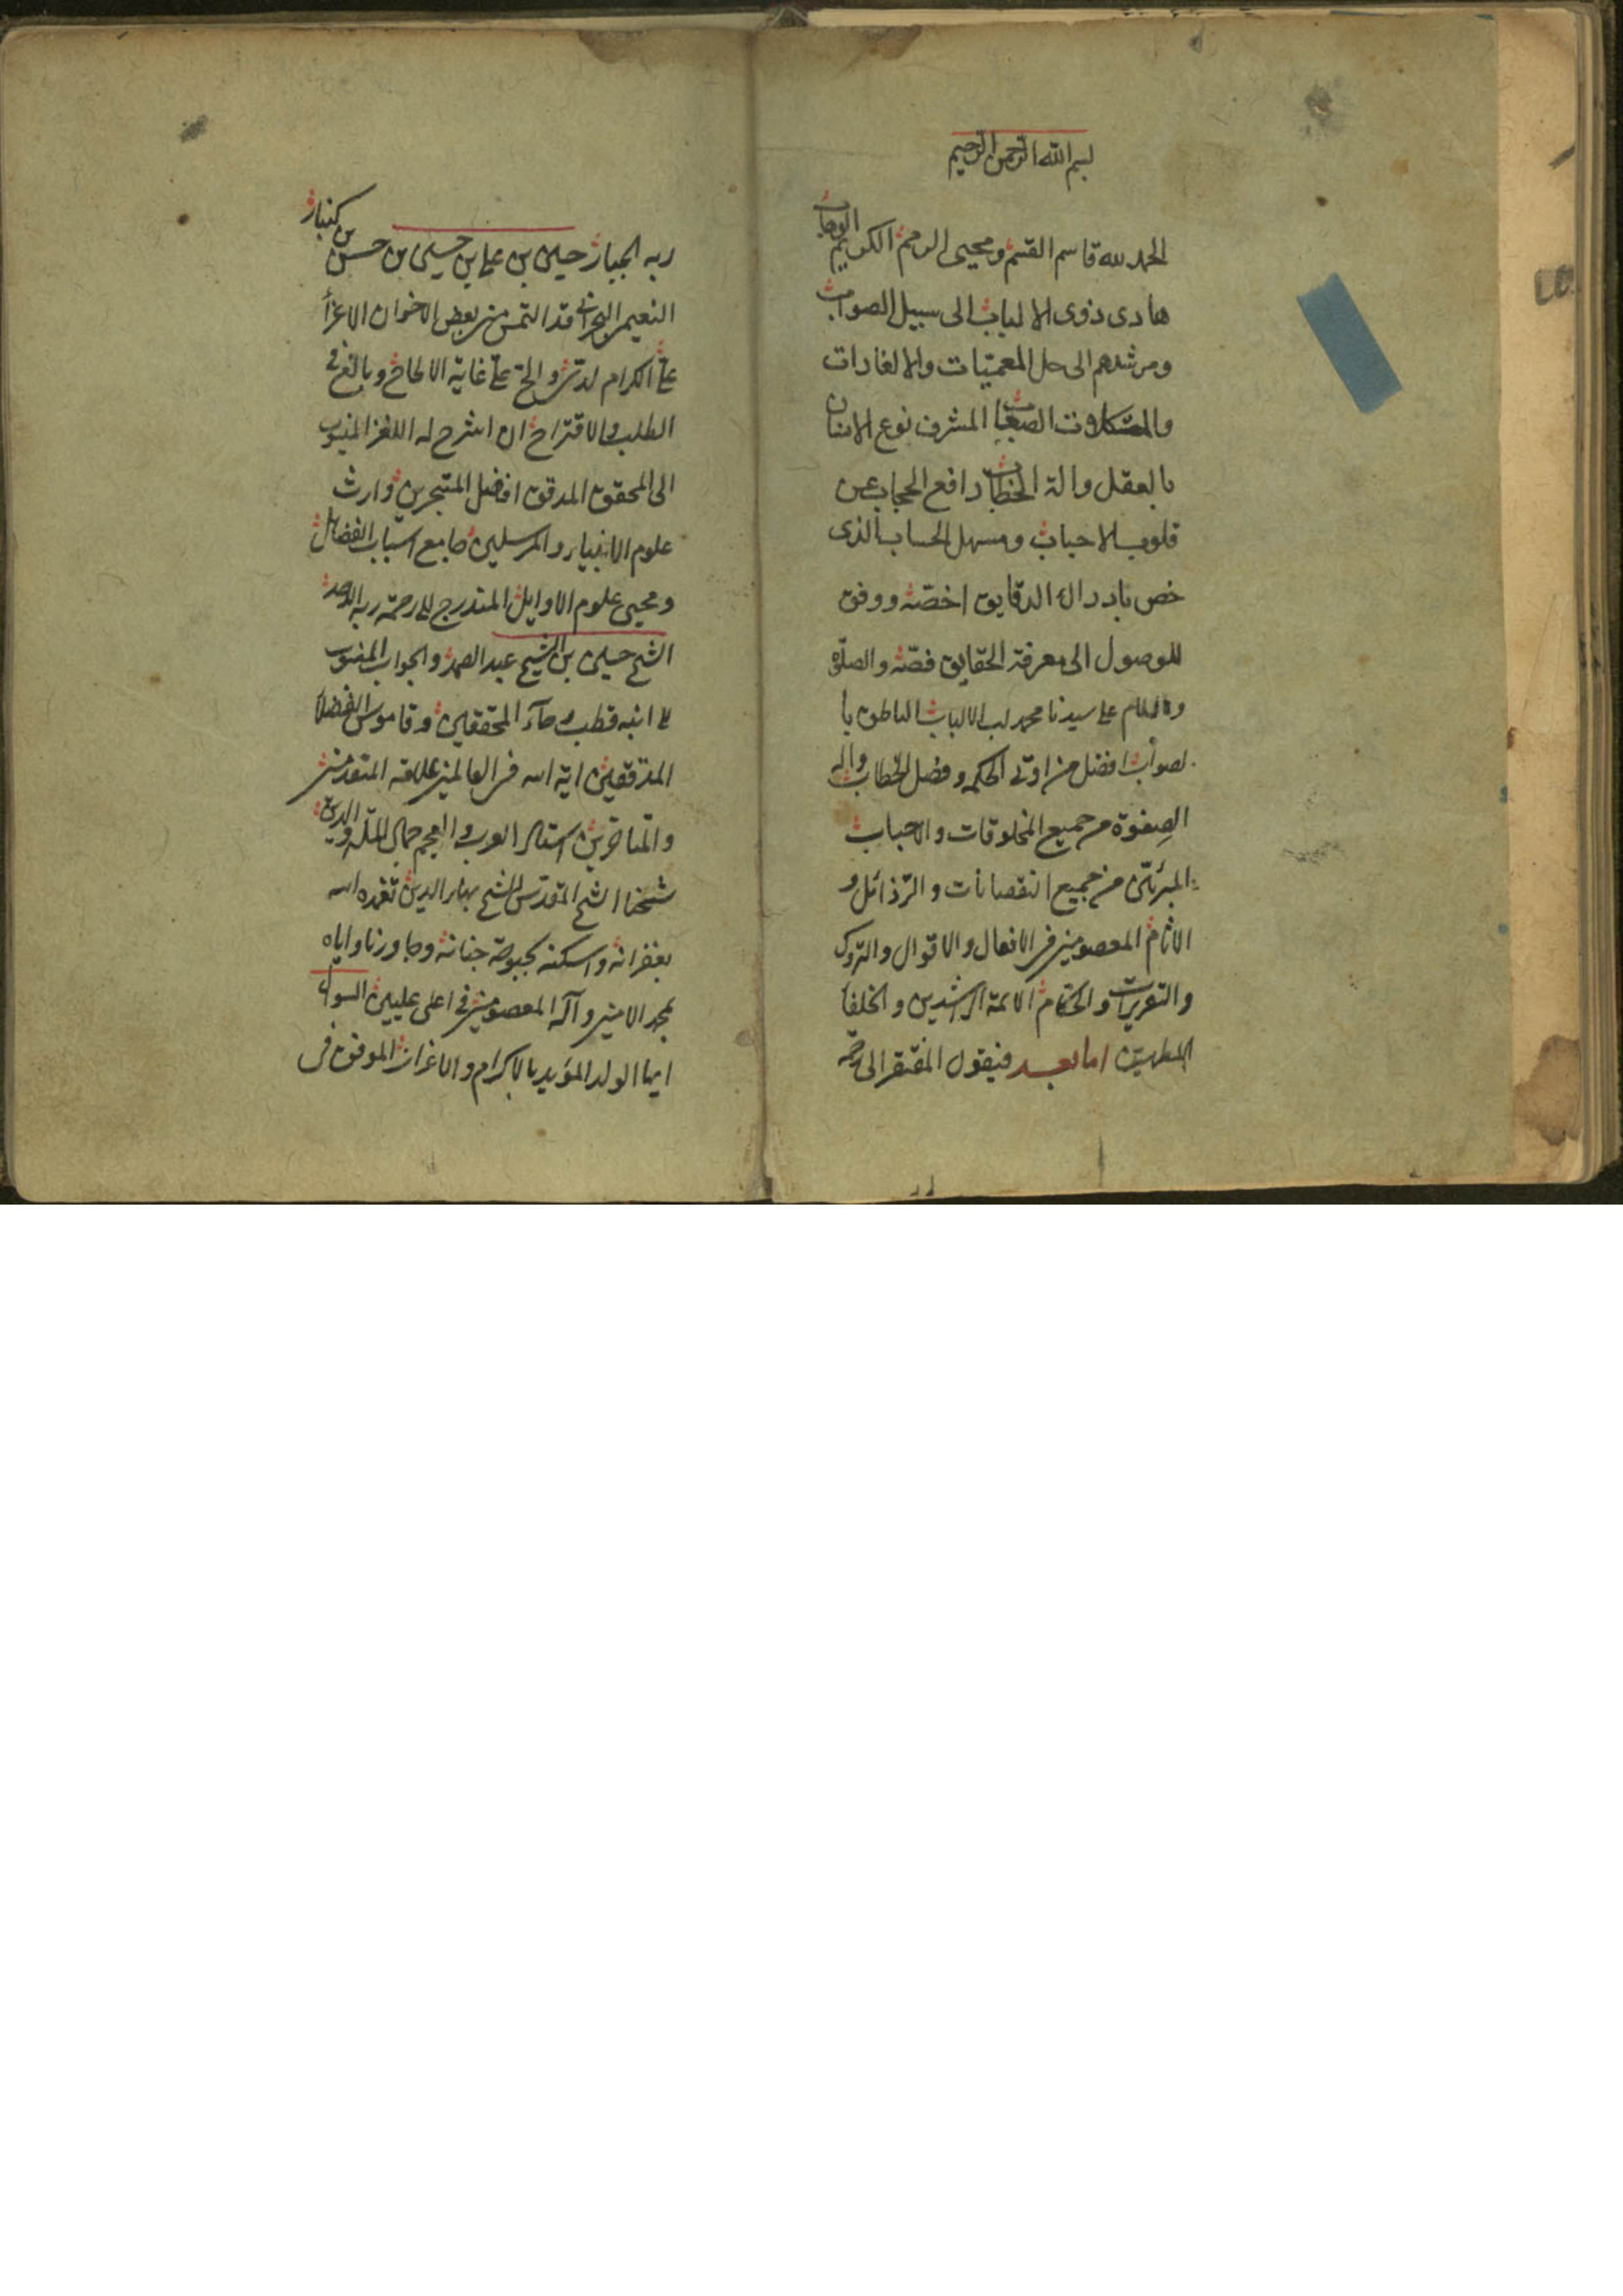 بسم الله الرحمن الرحيم
الحمد لله قاسم القسم ومحيى الرمم الكريم الوهاب
هادى ذوى الالباب الى سبيل الصواب
ومرشدهم الى حل المعميات والالغازات
والمشكلات الصعاب المشرف نوع الانسان
بالعقل والة الخطاب رافع الحجاب عن
قلوب الاحباب ومسهل الحساب الذى
خص بادراك الدقايق اخصته ووفق
للوصول الى معرفة الحقايق فصته والصلوة
والسلام على سيدنا محمد لب الالباب الناطق با
لصواب افضل من اوتى الحكمه وفصل الخطاب واله
الصفوة من جميع المخلوقات والاحباب
المبرئين من جميع النقصانات والرذائل و
الاثام المعصومين فى الافعال والاقوال والتروك
والتقريرات والحكام الائمة الراشدين والخلفا
اما بعد فيقول المفتقر الى رحمة
ربه الجبار حسين بن على بن حسين بن حسن بن كنبار
النعيمى البحرانى قد التمس منى بعض الاخوان الاعزأ
على الكرام لدى والح على غاية الالحاح وبالغ فى
الطلب والاقتراح ان اشرح له اللغز المنسوب
الى المحقق المدقق افضل المتبحرين وارث
علوم الانبياء والمرسلين جامع اسباب الفضائل
ومحيى علوم الاوايل المندرج الى رحمة ربه الاحد
الشيخ حسين بن الشيخ عبد الصمد والجواب المنسوب
الى ابنه قطب رحآء المحققين وقاموس الفضلآ
المدققين اية الله فى العالمين علامة المتقدمين
والمتاخرين استاد العرب والعجم جمال الملة والدين
شيخنا الشيخ المقدس الشيخ بهاء الدين تغمده الله
بغفرانه واسكنه بحبوحة جنانه وجاورنا واياه
بمحمد الامين وآله المعصومين فى اعلى عليين
ايها الولد المؤيد بالاكرام والاعزاز الموفق فى